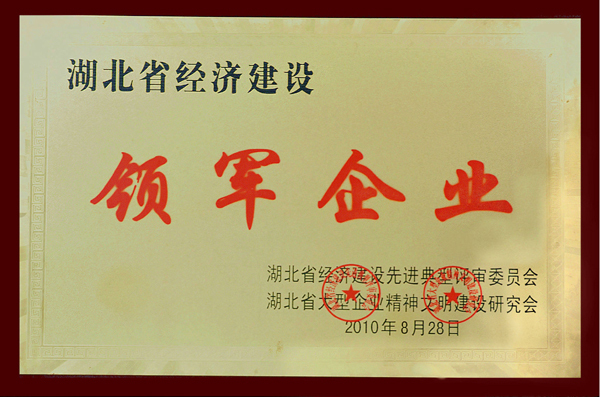 湖北省经济建设
领军企业
湖北省经济建设先进典型评审委员会
湖北省大型企业精神文明建设研究会
2010年8月28日